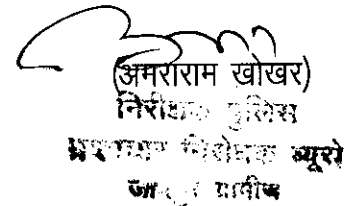 (अमराराम खोखर)
निरीक्षक पुलिस
भ्रष्टाचार निरोधक ब्यूरो
ग्रामीण